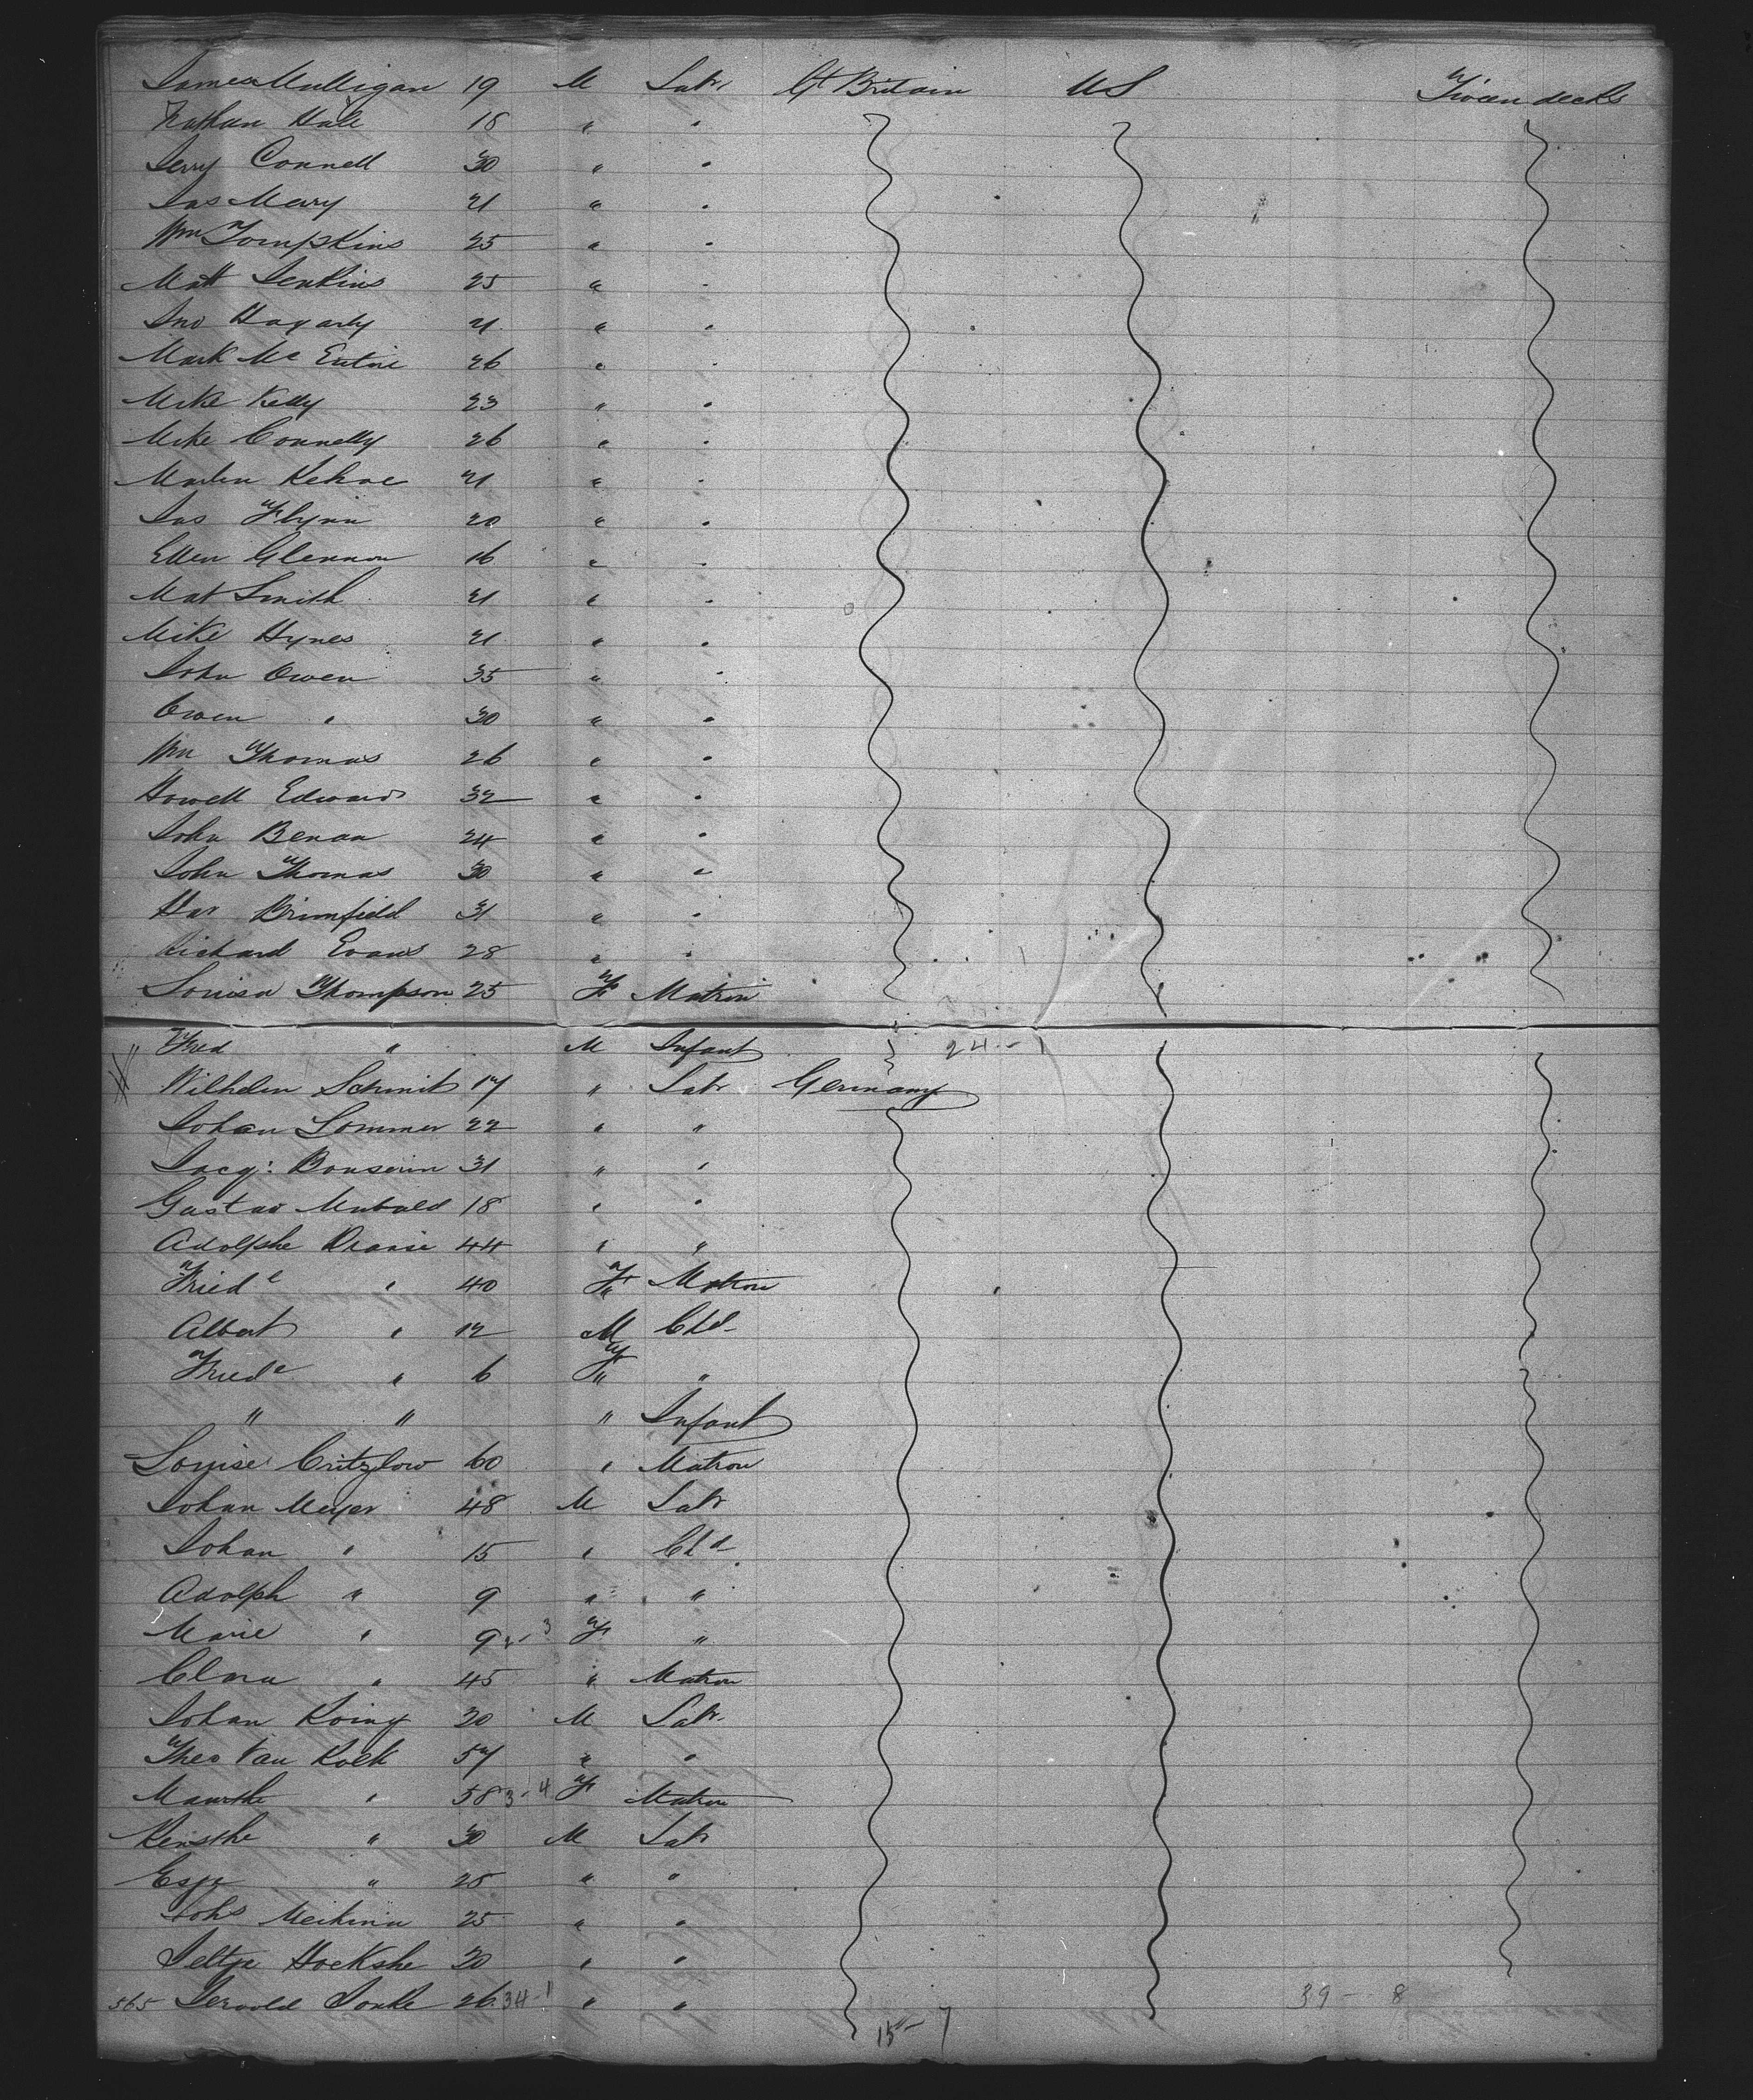 James Mulligan 19 M Labr Gt Britain US Tween decks
Nathan Hale 18 " "
Jerry Connell 30 " "
Jas Mary 21 " "
Wm Tompkins 25 " "
Matt Jenkins 25 " "
Jno Hagarty 21 " "
Mark Mc Entire 26 " "
Mike Kelly 23 " "
Mike Connelly 26 " "
Martin Kehoe 21 " "
Jas Flynn 20 " "
Ellen Glennon 16 " "
Mat Smith 21 " "
Mike Hynes 21 " "
John Owen 35 " "
Owen " 30 " "
Wm Thomas 26 " "
Howell Edwards 32 " "
John Benan 24 " "
John Thomas 30 " "
Har Brimfield 31 " "
Richard Evans 28 " "
Louisa Thompson 25 F Matron
Fred " M Infant 24 - 1
Wilhelm Schmit 17 " Labr Germany
Johan Sommer 22 " "
Jacq: 31 " "
Gustav 18 " "
Adolphe 44 " "
Friede " 40 F Matron
Albert " 12 M Chd
Friede " 6 F "
" " " Infant
Louise Critzlow 60 " Matron
Johan Meyer 48 M Labr
Johan " 15 " Chd
Adolph " 9 " "
Marie " 9 2-3 F "
Clara " 45 " Matron
Johan Koing 20 M Labr
Theo Van Kolk 57 " "
" 58 3-4 F Matron
" 30 M Labr
" 25 " "
Johs 25 " "
Jeltje Hoekshe 20 " "
565 26 34-1 " " 39 - 8
15 - 7